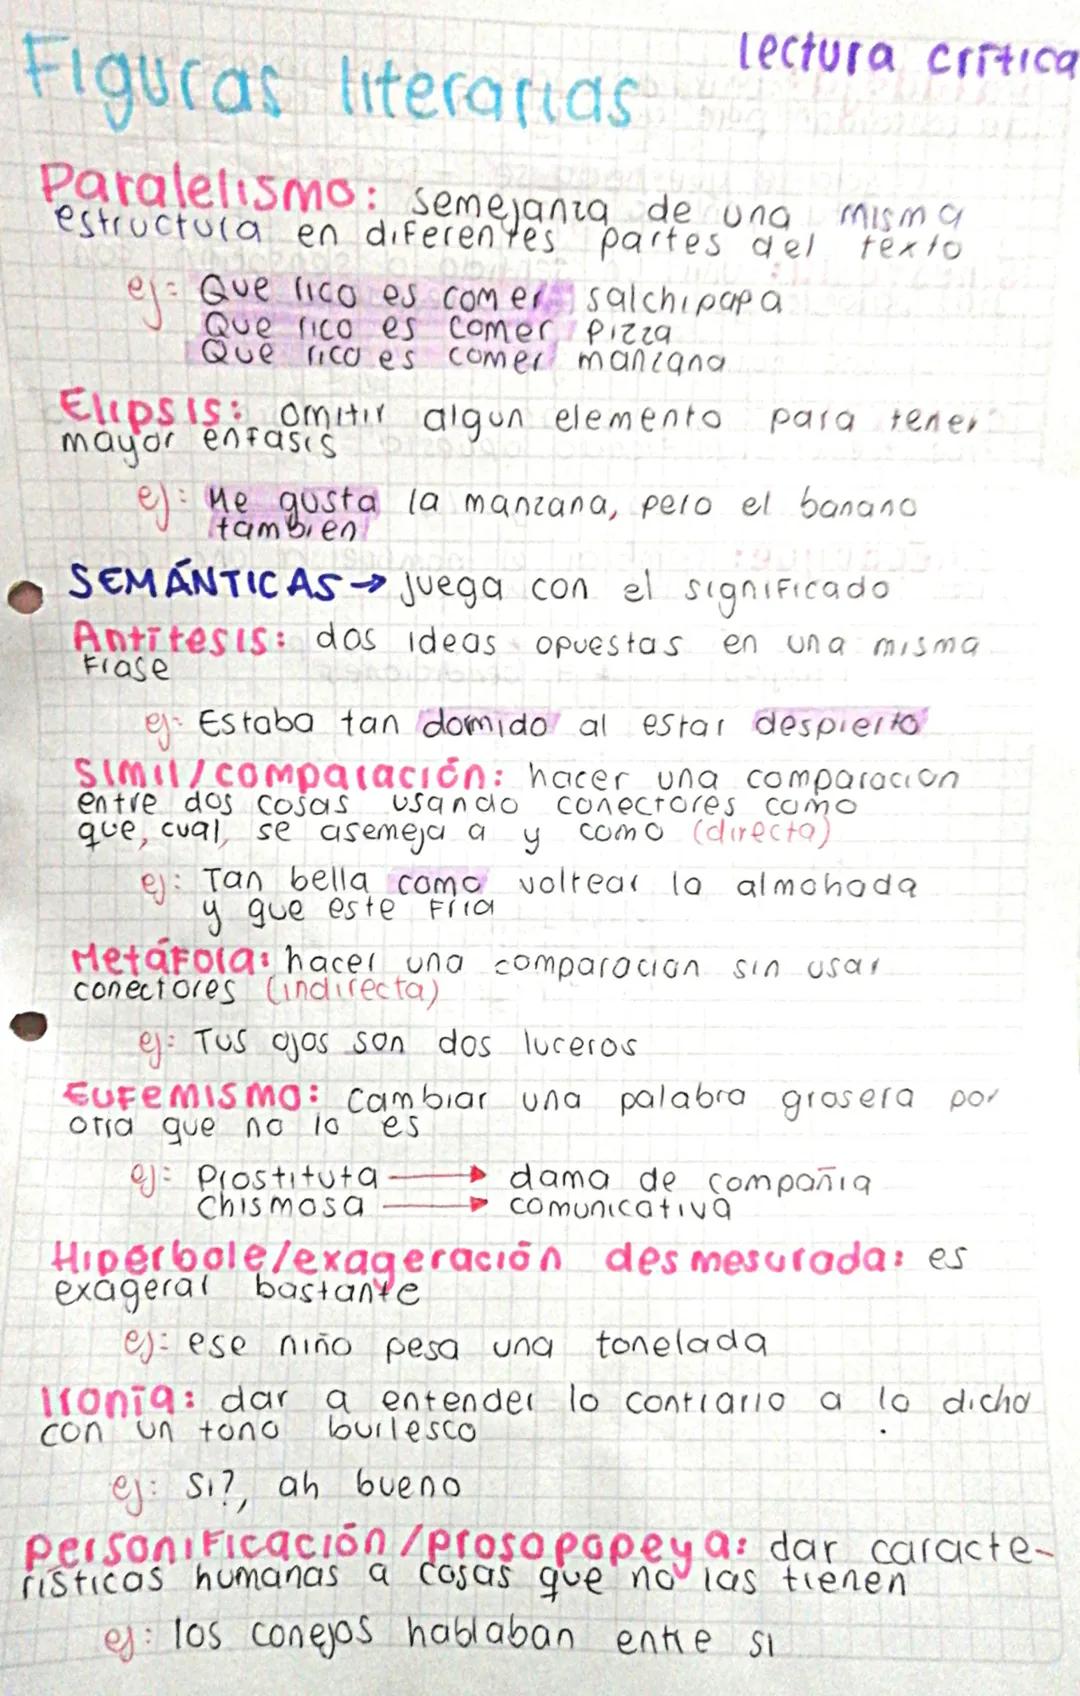 lectura crítica
Figuras literarias
Paralelismo: semejanza de una misma
estructura en diferentes partes del texto
ej: Que rico es comer salchipapa
Que rico es comer pizza
Que rico es comer manzana
Elipsis: omitir algun elemento para tener
mayor enfasis
ej: Me gusta la manzana, pero el banano
tambien
SEMÁNTICAS → juega con el significado
Antítesis: dos ideas opuestas en una misma
frase
ej: Estaba tan domido al estar despierto
Simil/comparación: hacer una comparacion
entre dos cosas usando conectores como
que, cual, se asemeja a y como (directa)
ej: Tan bella como voltear la almohada
y que este fria
Metáfora: hacer una comparacion sin usar
conectores (indirecta)
ej: Tus ojos son dos luceros
Eufemismo: cambiar una palabra grosera por
otra que no lo es
ej: Prostituta → dama de compañia
Chismosa → comunicativa
Hipérbole/exageración desmesurada: es
exagerar bastante
ej: ese niño pesa una tonelada
Ironía: dar a entender lo contrario a lo dicho
con un tono burlesco
ej: Si?, ah bueno
Personificación/prosopopeya: dar caracte-
rísticas humanas a cosas que no las tienen
ej: los conejos hablaban entre si